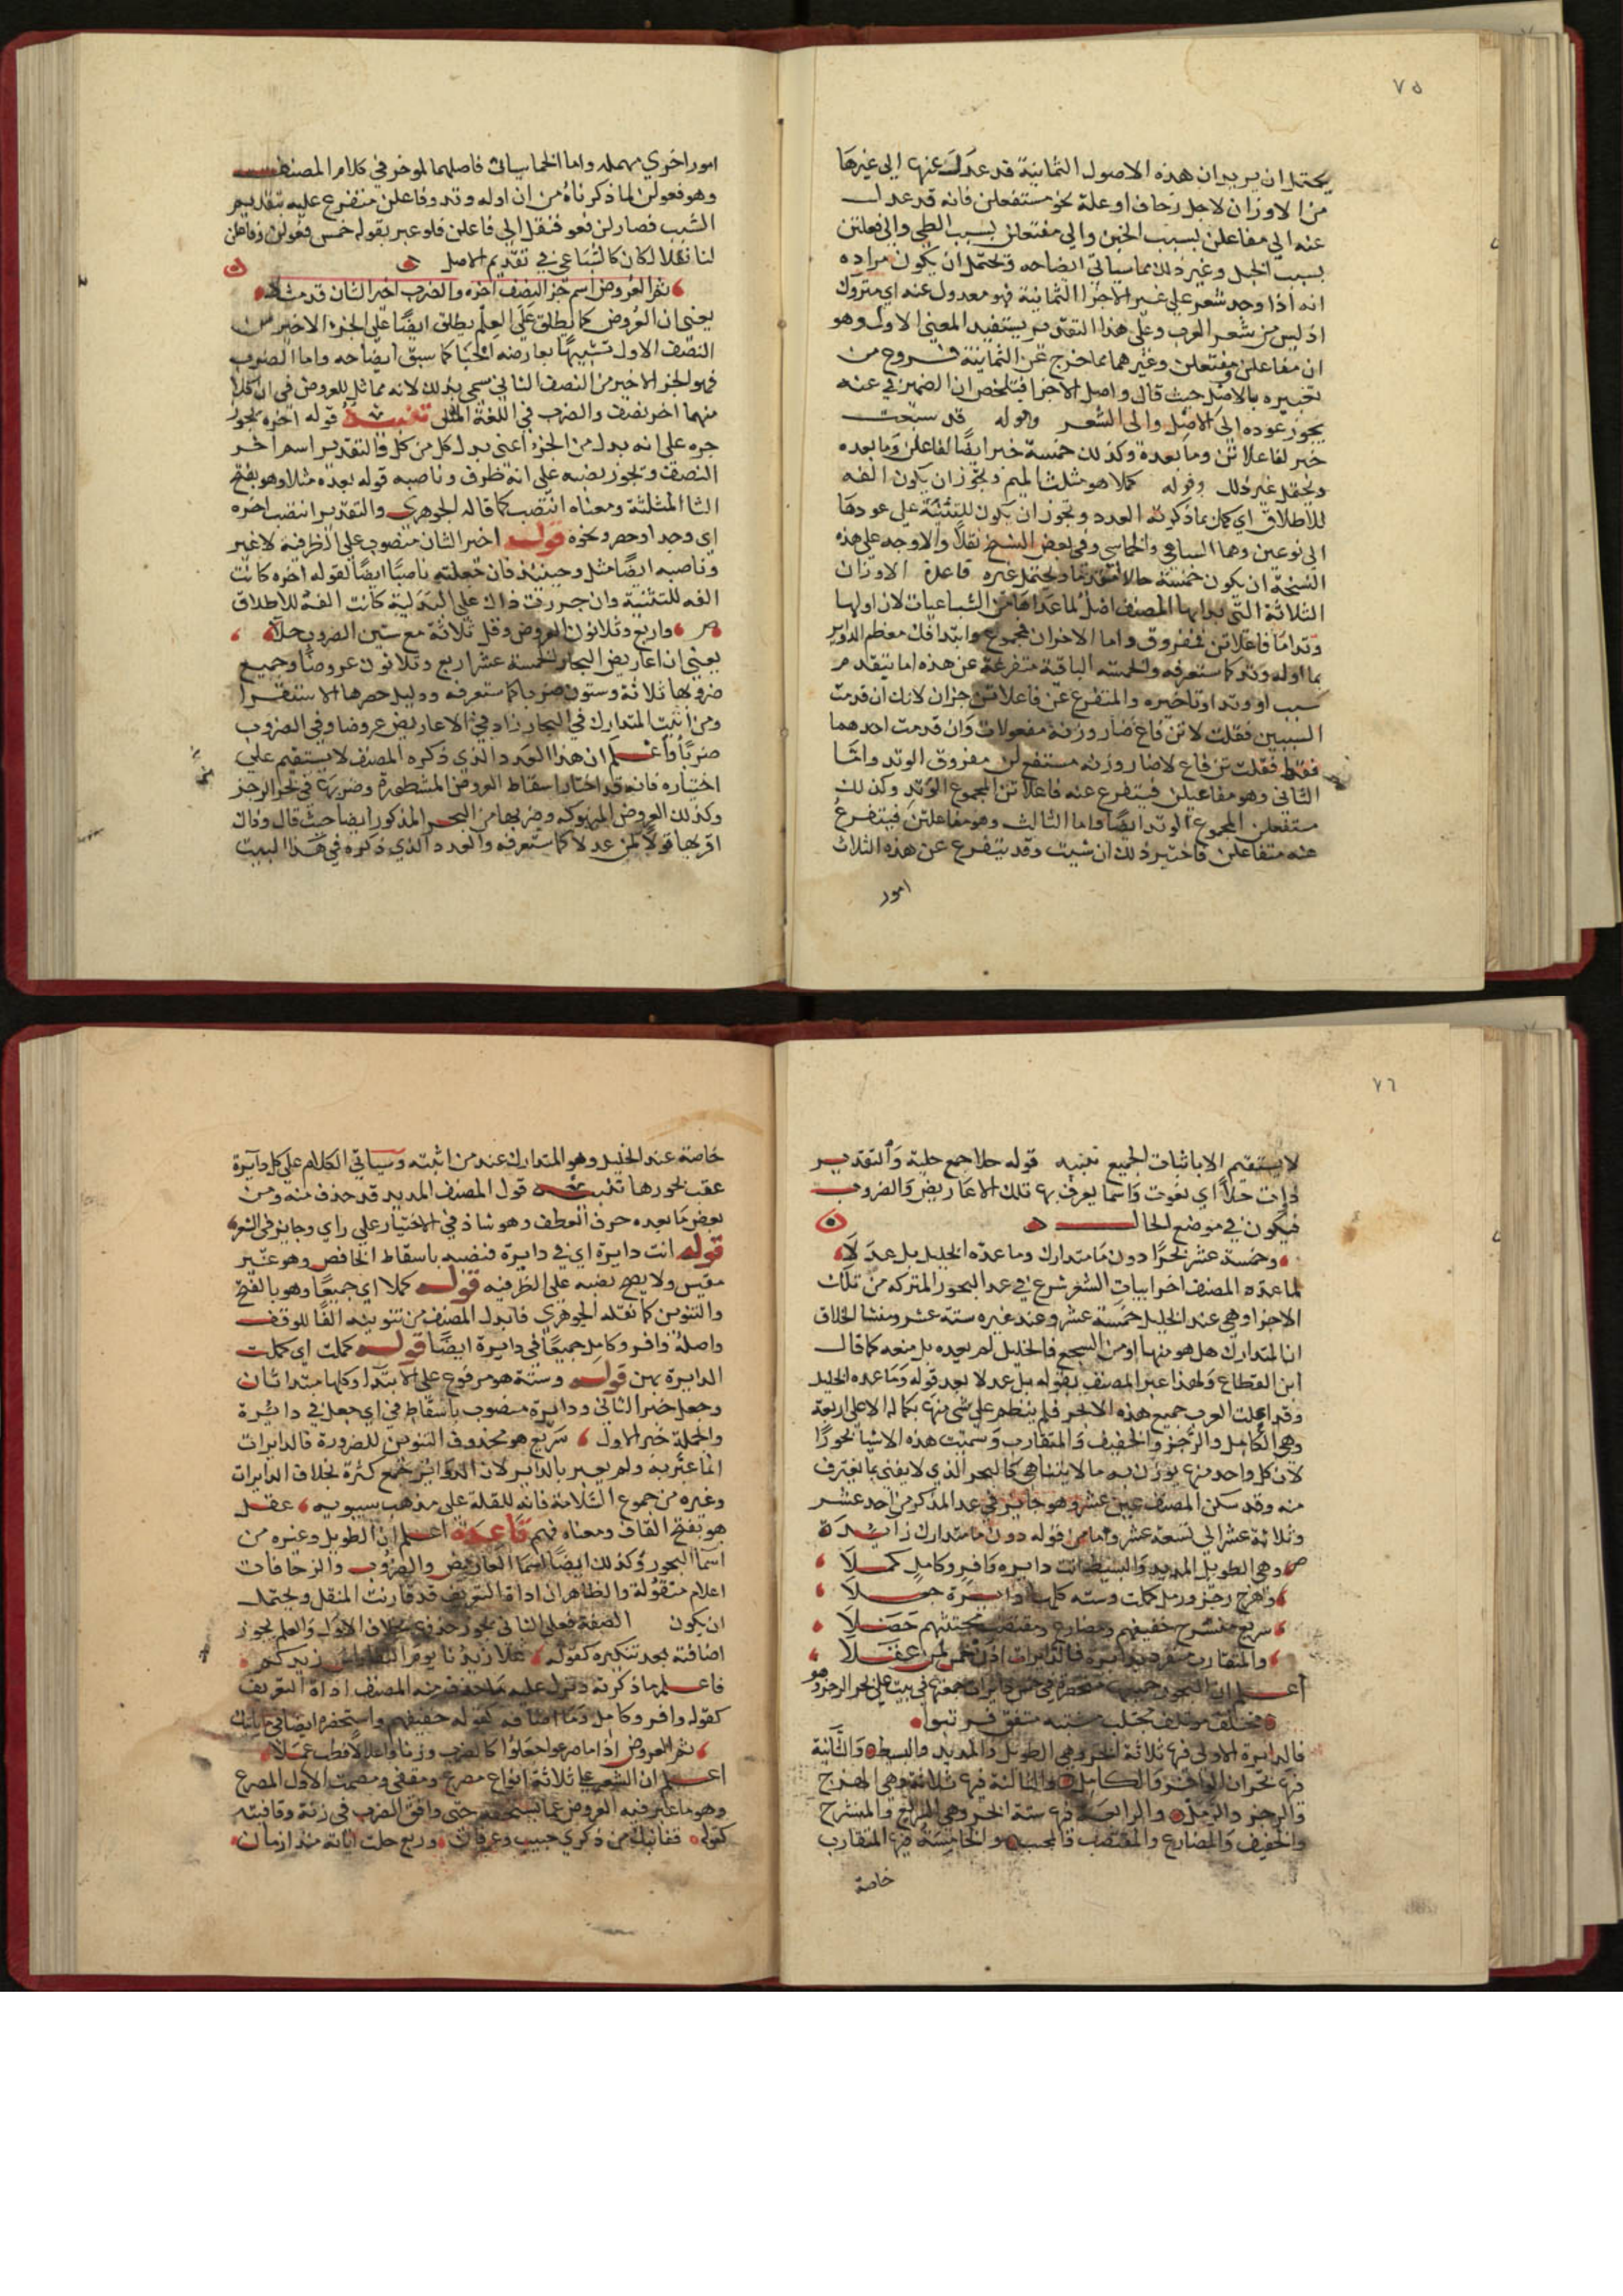 ٧٥
يحتمل ان يريد ان هذه الاصول الثمانية قد عدلت عنها الى غيرها
من الاوزان لاجل زحاف او علة نحو مستفعلن فانه قد عدل
عنه الي مفاعلن بسبب الخبن والي مفتعلن بسبب الطي والي فعلتن
بسبب الخبل وغير ذلك مما سياتي ايضاحه ويحتمل ان يكون مراده
انه اذا وجد شعر علي غير الاجزا الثمانية فهو معدول عنه اي متروك
اذ ليس من شعر العرب وعلى هذا التقدير يستفيد المعني الاول وهو
ان مفاعلن ومفتعلن وغيرهما مما خرج عن الثمانية فروع من
تعبيره بالاصل حيث قال واصل الاجزا فتلخص ان الضمير في عنه
يجوز عوده الى الاصل والى الشعر وقوله قد سبعت
خبر لفاعلاتن وما بعده وكذلك خمسة خبر ايضا لفاعلن وما بعده
ويحتمل غير ذلك وقوله كملا هو مثلث الميم ويجوز ان يكون الفه
للاطلاق اي كمل بما ذكرته العدد ويجوز ان يكون للتثنية على عودها
الي نوعين وهما السباعي والخماسي وفي بعض النسخ نقلا والاوجه على هذه
النسخة ان يكون خمسة حالا ويحتمل غيره قاعدة الاوزان
الثلاثة التي بدا بها المصنف اصل لما عداها من السباعيات لان اولها
وتد اما فاعلاتن فمفروق واما الاخران فمجموع وابتدا فك معظم الدواير
بما اوله وتد كما ستعرفه والخمسة الباقية متفرعة عن هذه اما بتقدم
سبب او وتد او تاخيره والمتفرع عن فاعلاتن جزان لانك ان قدمت
السببين فقلت لاتن فاع صار وزنه مفعولات وان قدمت احدهما
فقط فقلت تن فاع لا صار وزنه مستفع لن مفروق الوتد واما
الثاني وهو مفاعيلن فيتفرع عنه فاعلاتن المجموع الوتد وكذلك
مستفعلن المجموع الوتد ايضا واما الثالث وهو مفاعلتن فيتفرع
عنه متفاعلن فاختبر ذلك ان شيت وقد يتفرع عن هذه الثلاث
امور
امور اخري مهمله واما الخماسيات فاصلهما الموخر في كلام المصنف
وهو فعولن لما ذكرناه من ان اوله وتد وفاعلن متفرع عليه بتقديم
السبب فصار لن فعو فنقل الي فاعلن فلو عبر بقوله خمس فعولن وفاعلن
لنا نقلا لكان كالسباعي في تقديم الاصل
ثم العروض اسم جز النصف اخره والضرب اخر الثان قد مثلا
يعني ان العروض كما يطلق على العلم يطلق ايضا على الجزء الاخير من
النصف الاول تشبيها بعارضة الخبا كما سبق ايضاحه واما الضرب
فهو الجز الاخير من النصف الثاني سمي بذلك لانه مماثل للعروض في ان كلا
منهما اخر نصف والضرب في اللغة المثل تنبيه قوله اخره يجوز
جره على انه بدل من الجزء اعني بدل كل من كل والتقدير اسم اخر
النصف ويجوز نصبه على انه ظرف وناصبه قوله بعده مثلا وهو بفتح
الثا المثلثة ومعناه انتصب كما قاله الجوهري والتقدير انتصب اخره
اي وجد او حصر ونحوه قوله اخر الثان منصوب على الظرفية لا غير
وناصبه ايضا مثل وحينيذ فان جعلته ناصبا ايضا لقوله اخره كانت
الفه للتثنية وان جررت ذاك على البدلية كانت الفه للاطلاق
ص واربع وثلاثون العروض وقل ثلاثة مع ستين الضروب حلا
يعني ان اعاريض البحار الخمسة عشر اربع وثلاثون عروضا وجميع
ضروبها ثلاثة وستون ضربا كما ستعرفه ودليل حصرها الاستقرا
ومن اثبت المتدارك في البحار زاد في الاعاريض عروضا وفي الضروب
ضربا واعلم ان هذا العدد الذي ذكره المصنف لا يستقيم علي
اختياره فانه قد اختار اسقاط العروض المشطورة وضربها في بحر الرجز
وكذلك العروض المنهوكه وضربها من البحر المذكور ايضا حيث قال وذاك
اقربها قولا لمن عدلا كما ستعرفه والعدد الذي ذكره في هذا البيت
٧٦
لا يستقيم الا باثبات الجميع تنبيه قوله حلا جمع حلية والتقدير
ذات حلا اي نعوت واسما يعرف بها تلك الاعاريض والضروب
فيكون في موضع الحال
وخمسة عشر بحرا دون ما متدارك وما عده الخليل بل عدلا
لما عد المصنف اخر ابيات الشعر شرع في عد البحور المتركبة من تلك
الاجزا وهي عند الخليل خمسة عشر وعند غيره ستة عشر ومنشا الخلاف
ان المتدارك هل هو منها او من السجع فالخليل لم يعده بل منعه كما قال
ابن القطاع ولهذا عبر المصنف بقوله بل عدلا بعد قوله وما عده الخليل
وقد اهملت العرب جميع هذه الابحر فلم ينظم على شي منها بكماله الا على اربعة
وهي الكامل والرجز والخفيف والمتقارب وسميت هذه الاشيا بحورا
لان كل واحد منها يوزن به ما لا يتناهي كالبحر الذي لا يفني بما يغترف
منه وقد سكن المصنف عين عشر وهو جايز في عد المذكر من احد عشر
وثلاثة عشر الي تسعة عشر وما من قوله دون ما متدارك زايدة
ص وهي الطويل المديد والبسيط انت دايره وافر وكامل كملا
وهزج رجز ورمل كملت وستة كلها دايرة جعلا
سريع منسرح خفيفهم ومضارع ومقتضب مجتثهم حصلا
والمتقارب منفرد بدايرة فالدايرات اذن خمس لمن عقلا
اعلم ان البحور جميعها منحصرة في خمس دايرات جمعتها في بيت على بحر الرجز وهو
مختلف موتلف مجتلب مشتبه متفق فرتبوا
فالدايرة الاولى فيها ثلاثة ابحر وهي الطويل والمديد والبسيط والثانية
فيها بحران الوافر والكامل والثالثة فيها ثلاثة وهي الهزج
والرجز والرمل والرابعة فيها ستة ابحر وهي السريع والمنسرح
والخفيف والمضارع والمقتضب والمجتث والخامسة فيها المتقارب
خاصة
خاصة عند الخليل وهو المتدارك عند من اثبته وسياتي الكلام على كل دايرة
عقب بحورها تنبيه قول المصنف المديد قد حذف منه ومن
بعض ما بعده حرف العطف وهو شاذ في الاختيار على راي وجايز في الشعر
قوله انت دايرة اي في دايرة فنصبه باسقاط الخافض وهو غير
مقيس ولا يصح نصبه على الظرفية قوله كملا اي جميعا وهو بالفتح
والتنوين كما نقله الجوهري فابدل المصنف من تنوينه الفا للوقف
واصله وافر وكامل جميعا في دايرة ايضا قوله كملت اي كملت
الدايرة بهن قوله وستة هو مرفوع على الابتدا وكلها مبتدا ثان
وجعل خبر الثاني ودايرة منصوب باسقاط في اي جعل في دايرة
والجملة خبر الاول سريع هو محذوف التنوين للضرورة فالدايرات
انما عبر به ولم يعبر بالداير لان الدواير جمع كثرة بخلاف الدايرات
وغيره من جموع السلامة فانه للقلة على مذهب سيبويه عقل
هو بفتح القاف ومعناه فهم قاعدة اعلم ان الطويل وغيره من
اسما البحور وكذلك ايضا اسما الاعاريض والضروب والزحافات
اعلام منقولة والظاهر ان اداة التعريف قد قارنت المنقل ويحتمل
ان يكون الصفة فعلى الثاني يجوز حذف بخلاف الاول والعلم يجوز
اضافته بعد تنكيره كقوله علا زيدنا يوم النقا راس زيدكم
فاعلم ما ذكرته المصنف اداة التعريف
كقوله وافر وكامل وما اضافه كقوله خفيفهم واستحضره ايضا
ثم العروض اذا ما صرعوا جعلوا كالضرب وزنا واعلالا قطب عملا
اعلم ان الشعر على ثلاثة انواع مصرع ومقفى ومصمت الاول المصرع
وهو ما غير فيه العروض عما يستحقه حتى وافق الضرب في زنة وقافية
كقوله قفا نبك من ذكري حبيب وعرفان وربع خلت اياته منذ ازمان